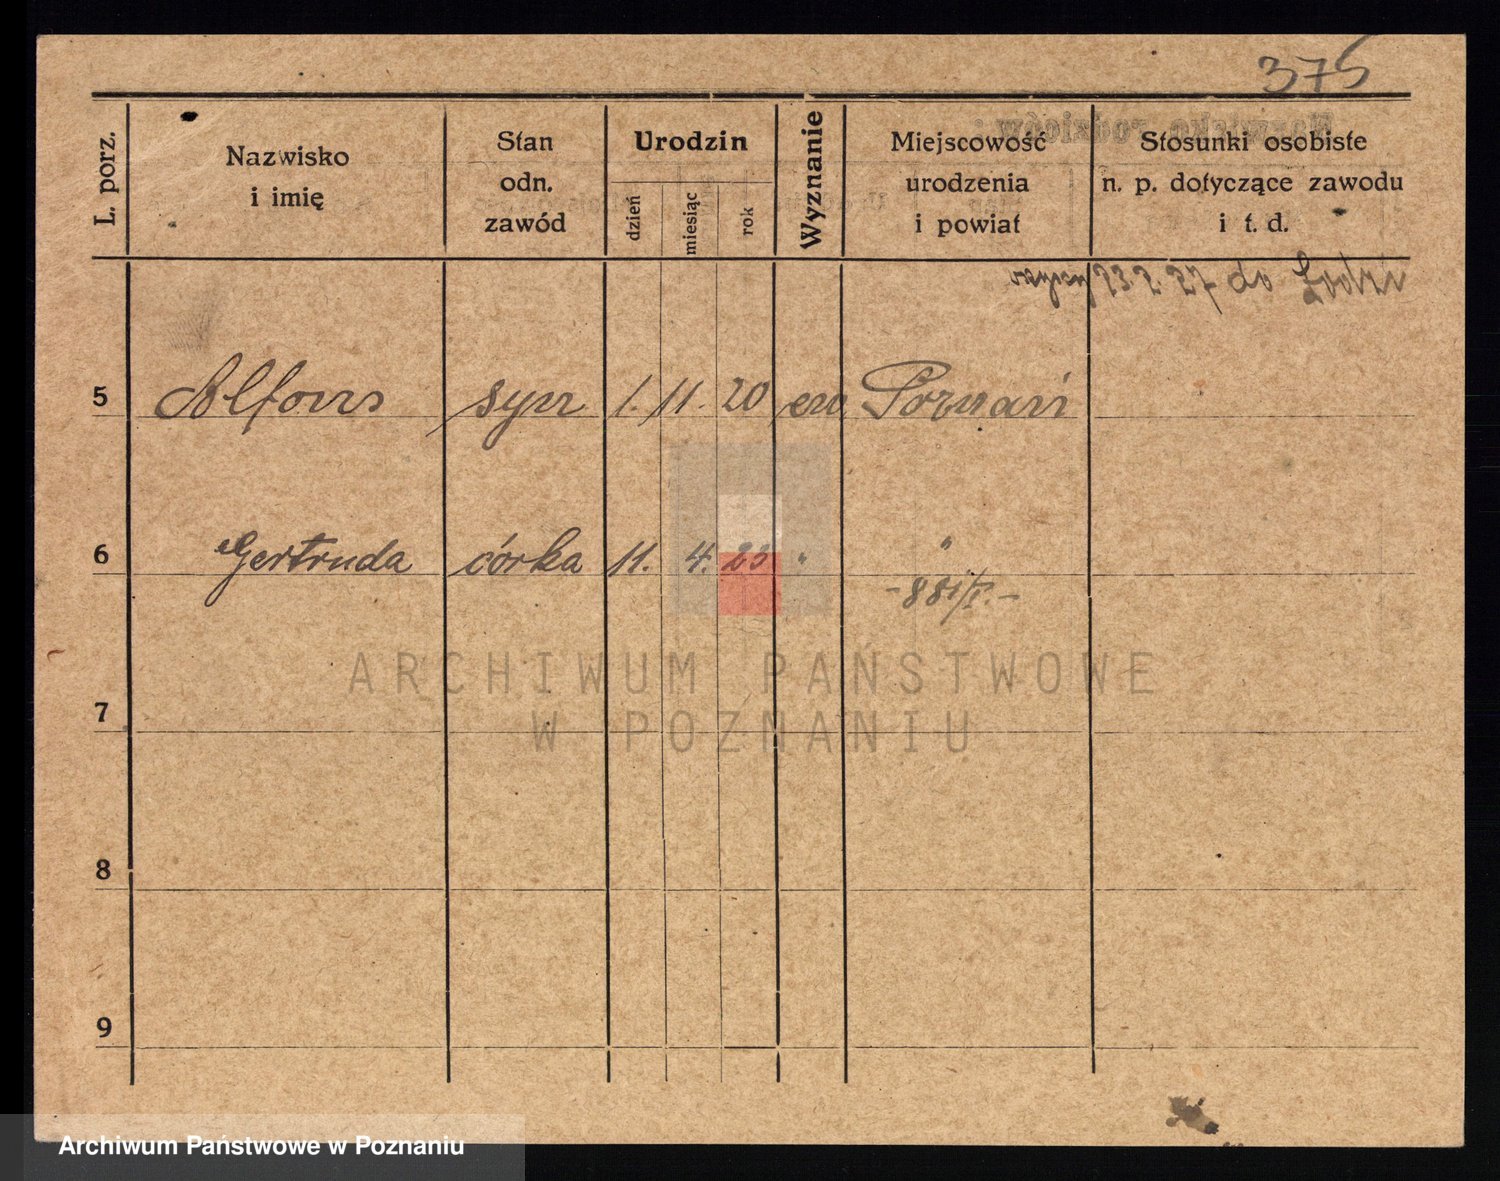 375
L. porz.
Nazwisko
i imię
Stan
odn.
zawód
Urodzin
dzień
miesiąc
rok
Wyznanie
Miejscowość
urodzenia
i powiat
Stosunki osobiste
n. p. dotyczące zawodu
i t. d.
5 Alfons syn 1. 11. 20 ew Poznań
6 Gertruda córka 11. 4. 23 " "
7
8
9
ARCHIWUM PAŃSTWOWE
W POZNANIU
Archiwum Państwowe w Poznaniu